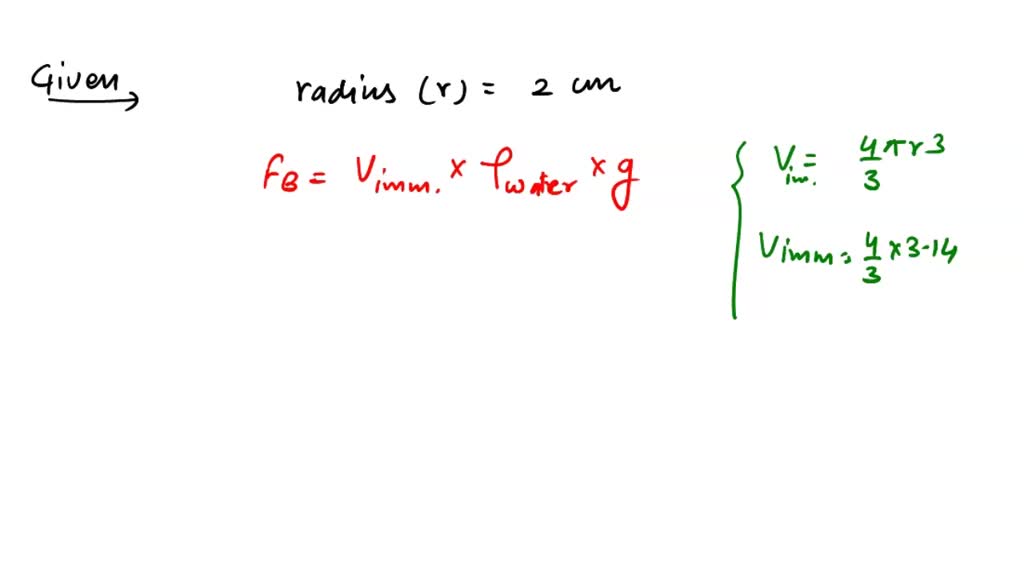 Given
radius (r) = 2 cm
FB = Vimm. × ρwater × g
Vim. = 4/3 πr3
Vimm = 4/3 × 3.14